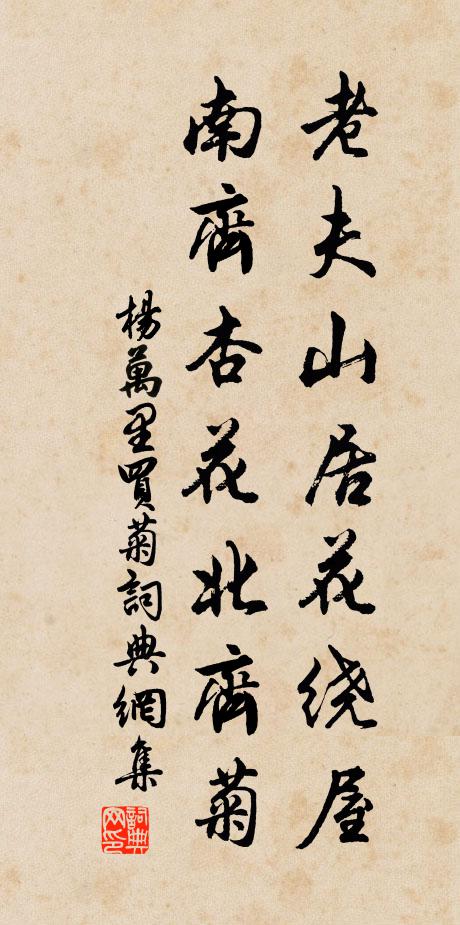 老夫山居花绕屋
南齊杏花北齊菊
楊萬里買菊詞典網集
詞典网印